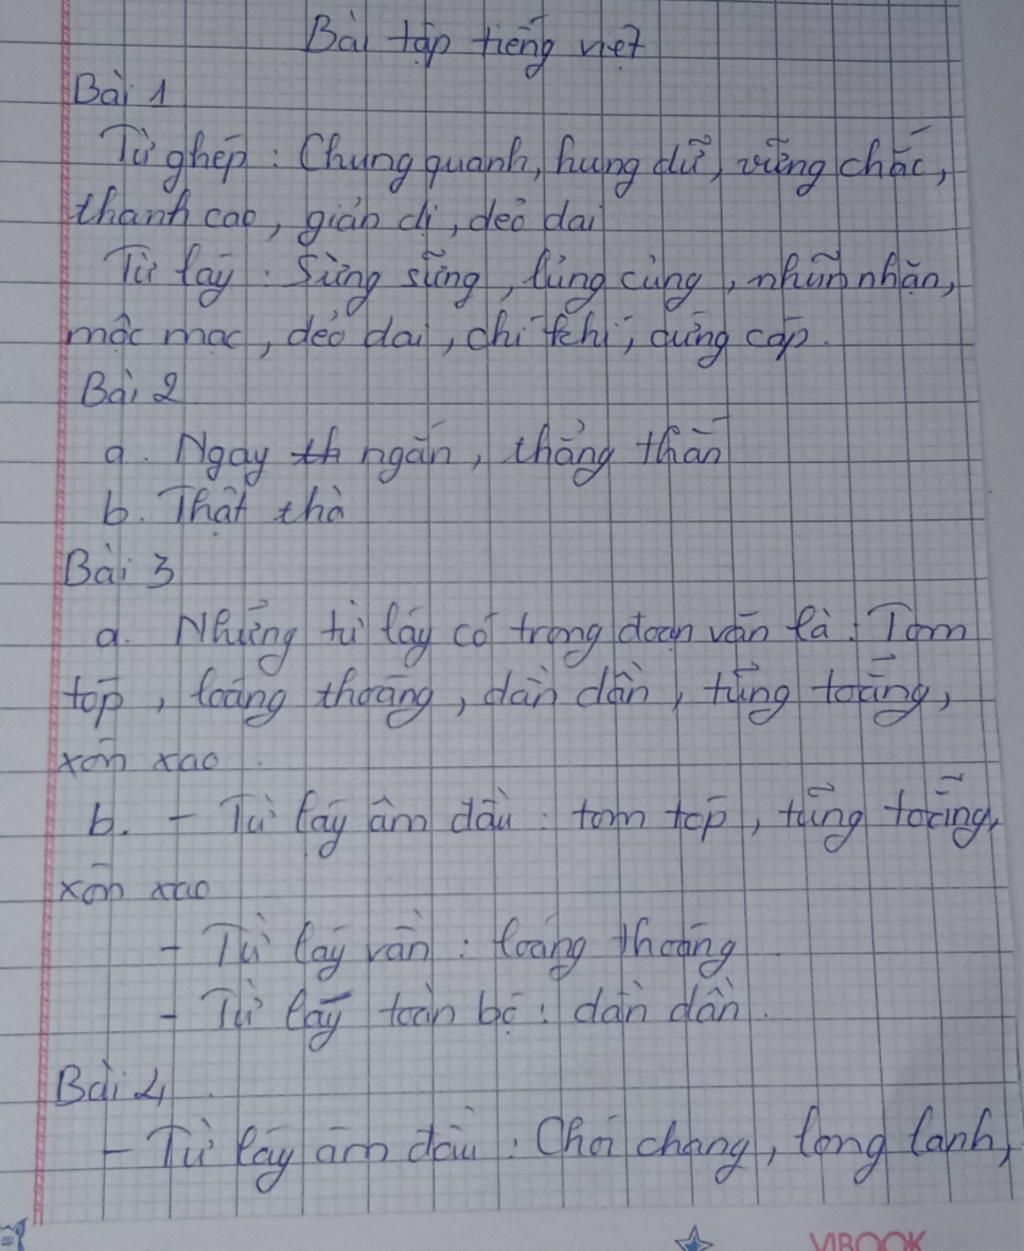 Bài tập tiếng việt
Bài 1
Từ ghép : Chung quanh, hung dữ, vững chắc,
thanh cao, giản dị, dẻo dai
Từ láy : Sừng sững, lủng củng, nhũn nhặn,
mộc mạc, dẻo dai, chí khí, cứng cáp.
Bài 2
a. Ngay th ngắn, thẳng thắn
b. Thật thà
Bài 3
a. Những từ láy có trong đoạn văn là : Tom
tóp, loáng thoáng, dần dần, tũng toãng,
xôn xao
b. - Từ láy âm đầu : tom tóp, tũng toãng,
xôn xao
- Từ láy vần : loáng thoáng
- Từ láy toàn bộ : dần dần.
Bài 4
- Từ láy âm đầu : Chói chang, long lanh,
VIBOOK